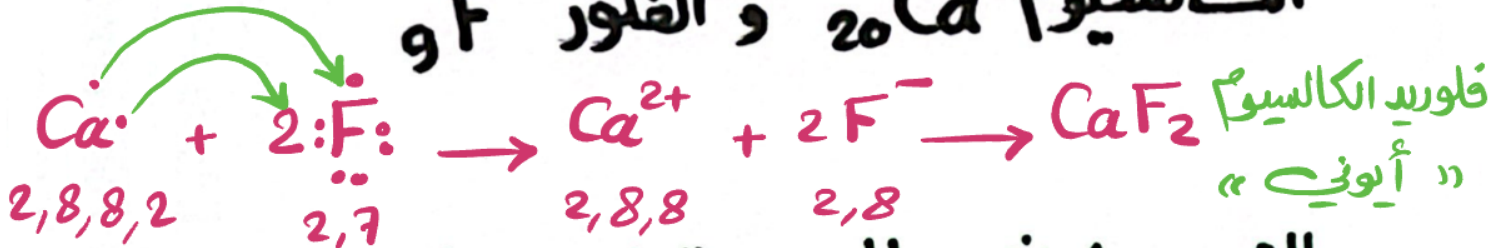 الكالسيوم 20Ca و الفلور 9F
Ca + 2:F: → Ca²⁺ + 2F⁻ → CaF₂ فلوريد الكالسيوم
« أيوني »
2,8,8,2 2,7 2,8,8 2,8